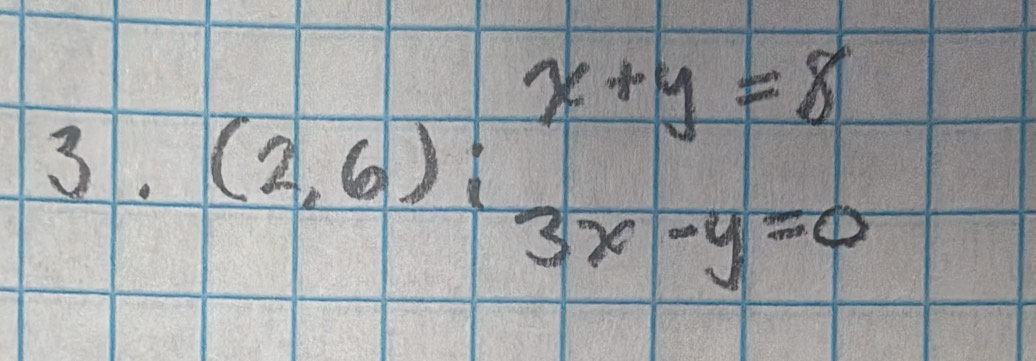 x+y=8
3. (2,6);
3x-y=0